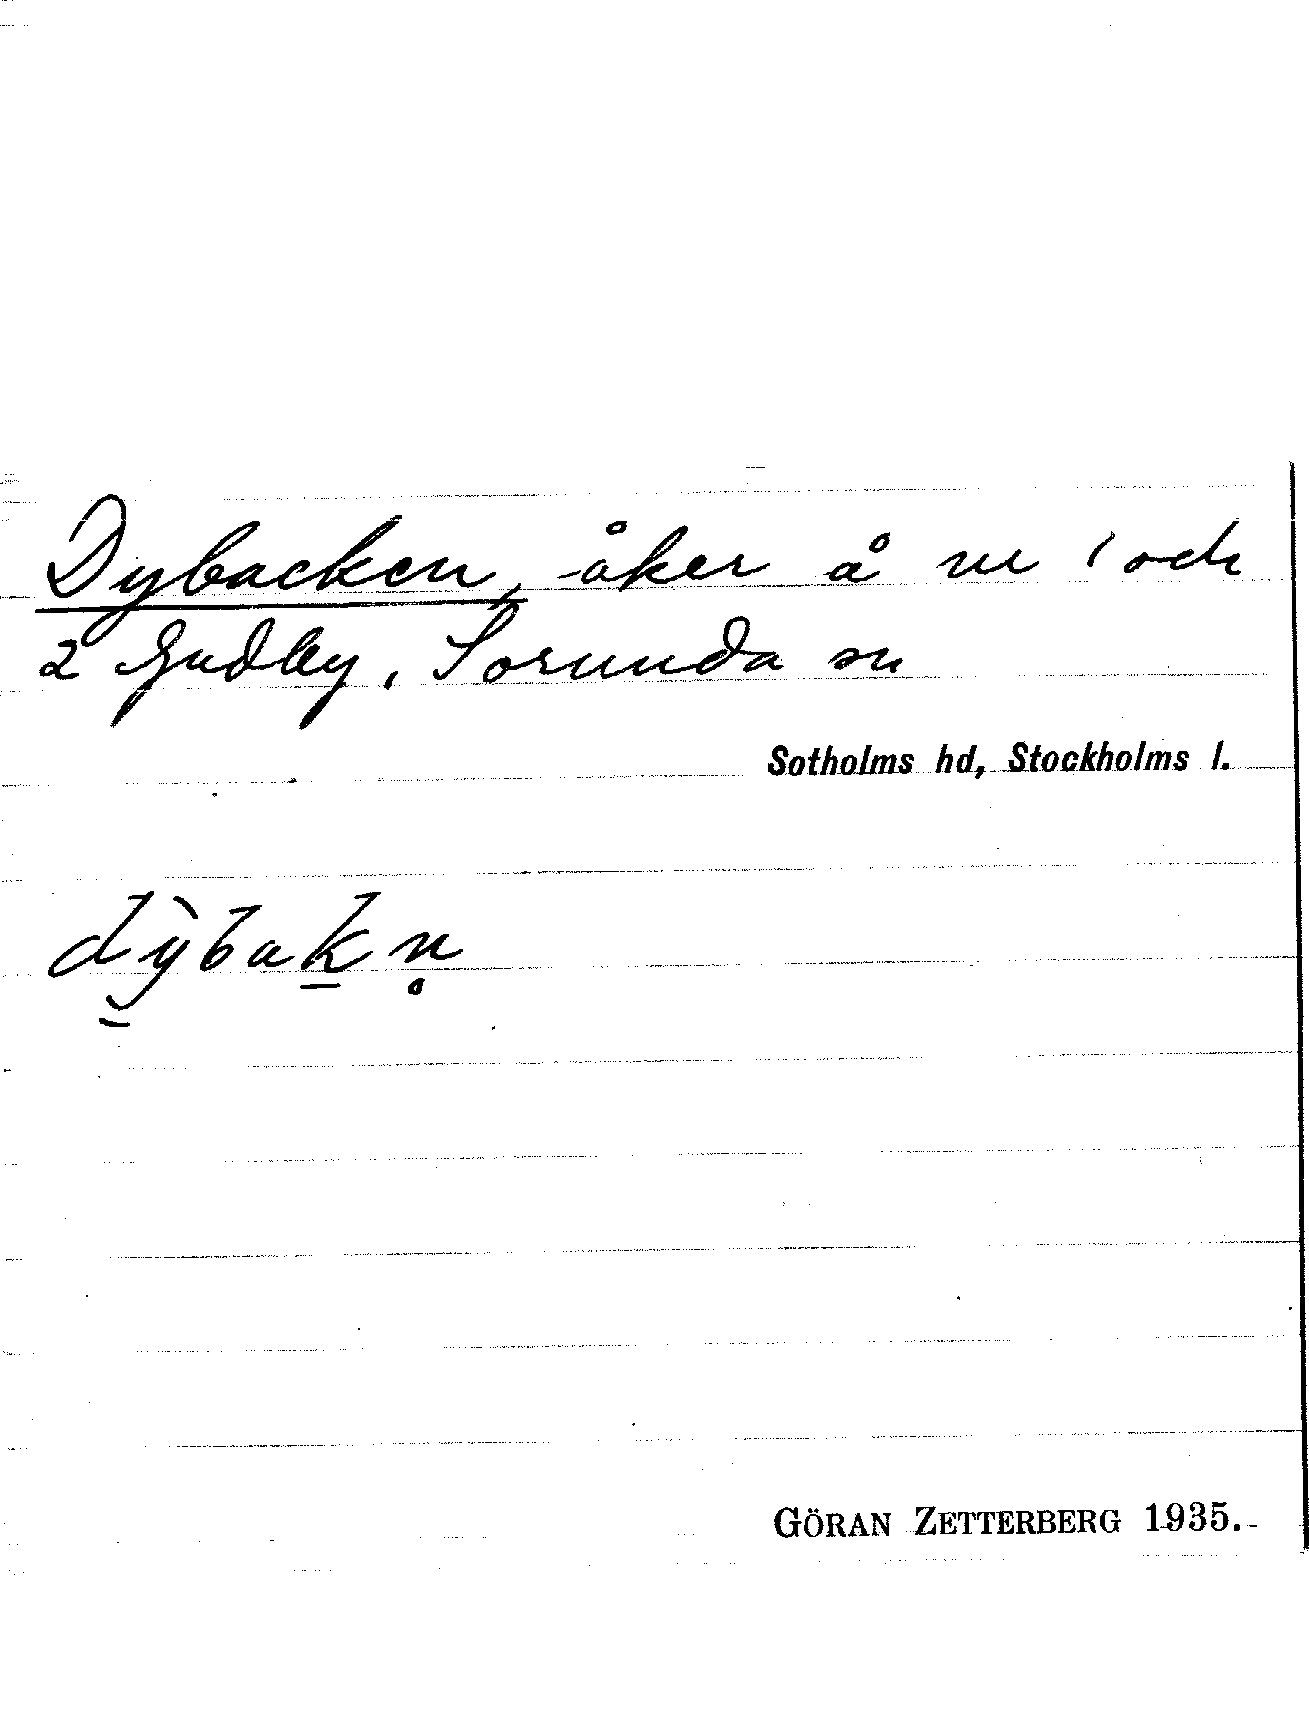 Dybacken, åker å nr 1 och
2 Gudby, Sorunda sn
Sotholms hd, Stockholms l.
dỳ̱bak̠n̥
GÖRAN ZETTERBERG 1935.